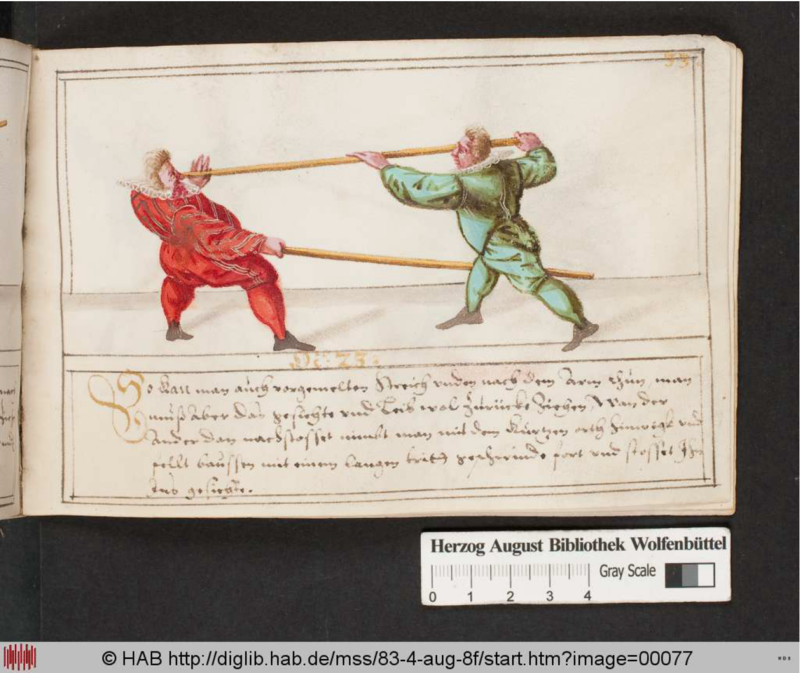 33
No: 23:
So kan man auch vorgemelten streich unden nach dem Arm thun, man
muß aber das gesichte und Leib wol zurücke ziehen, Wan der
Ander dan nachstosset nimbt man mit dem kurtzen orth hinwegk und
felt baussen mit einem langen tritt geschwinde fort und stosset Ihn
ins gesichte.
Herzog August Bibliothek Wolfenbüttel
Gray Scale
0 1 2 3 4
© HAB http://diglib.hab.de/mss/83-4-aug-8f/start.htm?image=00077